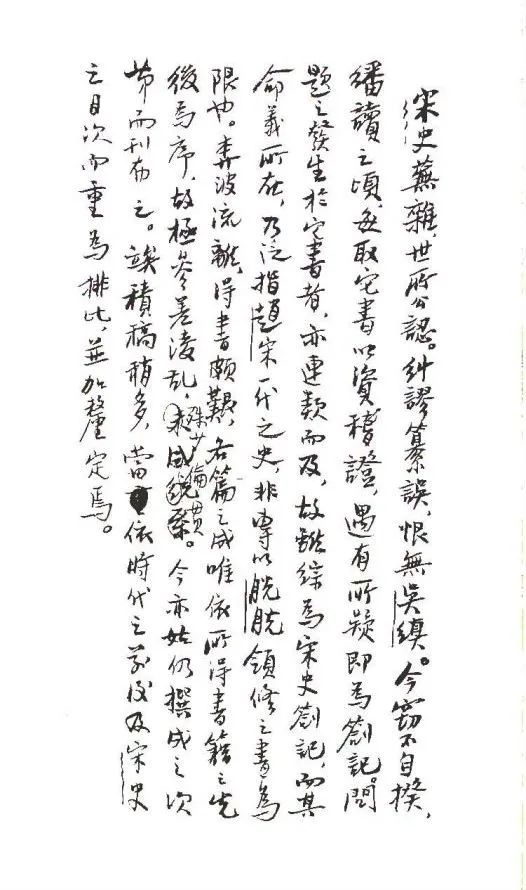 宋史蕪雜，世所公認。糾謬纂誤，恨無吳縝。今竊不自揆，
繙讀之頃，每取它書以資稽證，遇有所疑即為劄記。問
題之發生於它書者，亦連類而及，故雖綜為宋史劄記，而其
命義所在，乃泛指趙宋一代之史，非專以脫脫領修之書為
限也。奔波流離，得書頗艱，各篇之成唯依所得書籍之先
後為序，故極參差淩乱，殊少倫貫。今亦姑仍撰成之次
苐而刊布之。竢積稿稍多，當依時代之前後及宋史
之目次而重為排比，並加釐定焉。